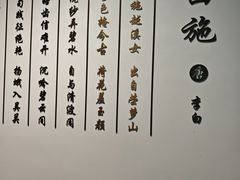 西施 唐 李白
施越溪女 出自苎萝山
色掩今古 荷花羞玉颜
纱弄碧水 自与清波闲
齿信难开 沉吟碧云间
践徵绝艳 扬蛾入吴关